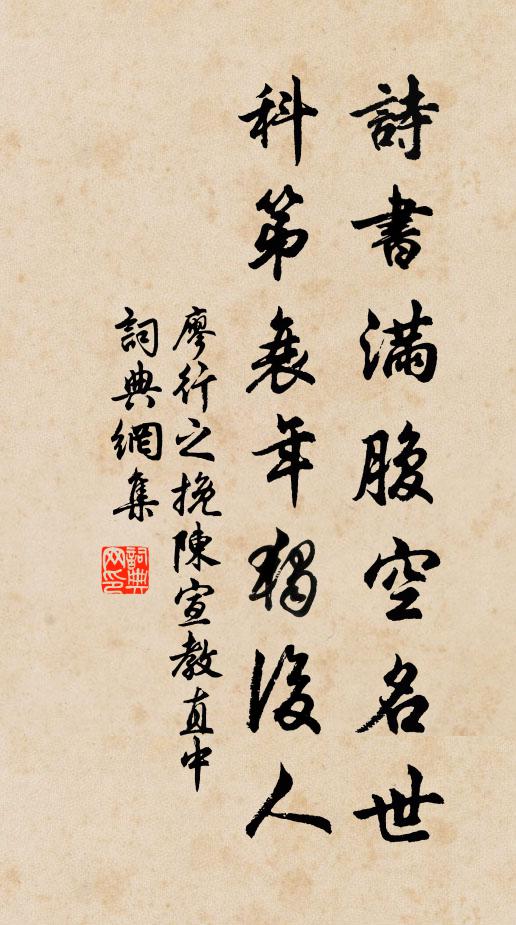 詩書滿腹空名世
科第衰年獨後人
廖行之挽陳宣教直中
詞典網集
詞典网印